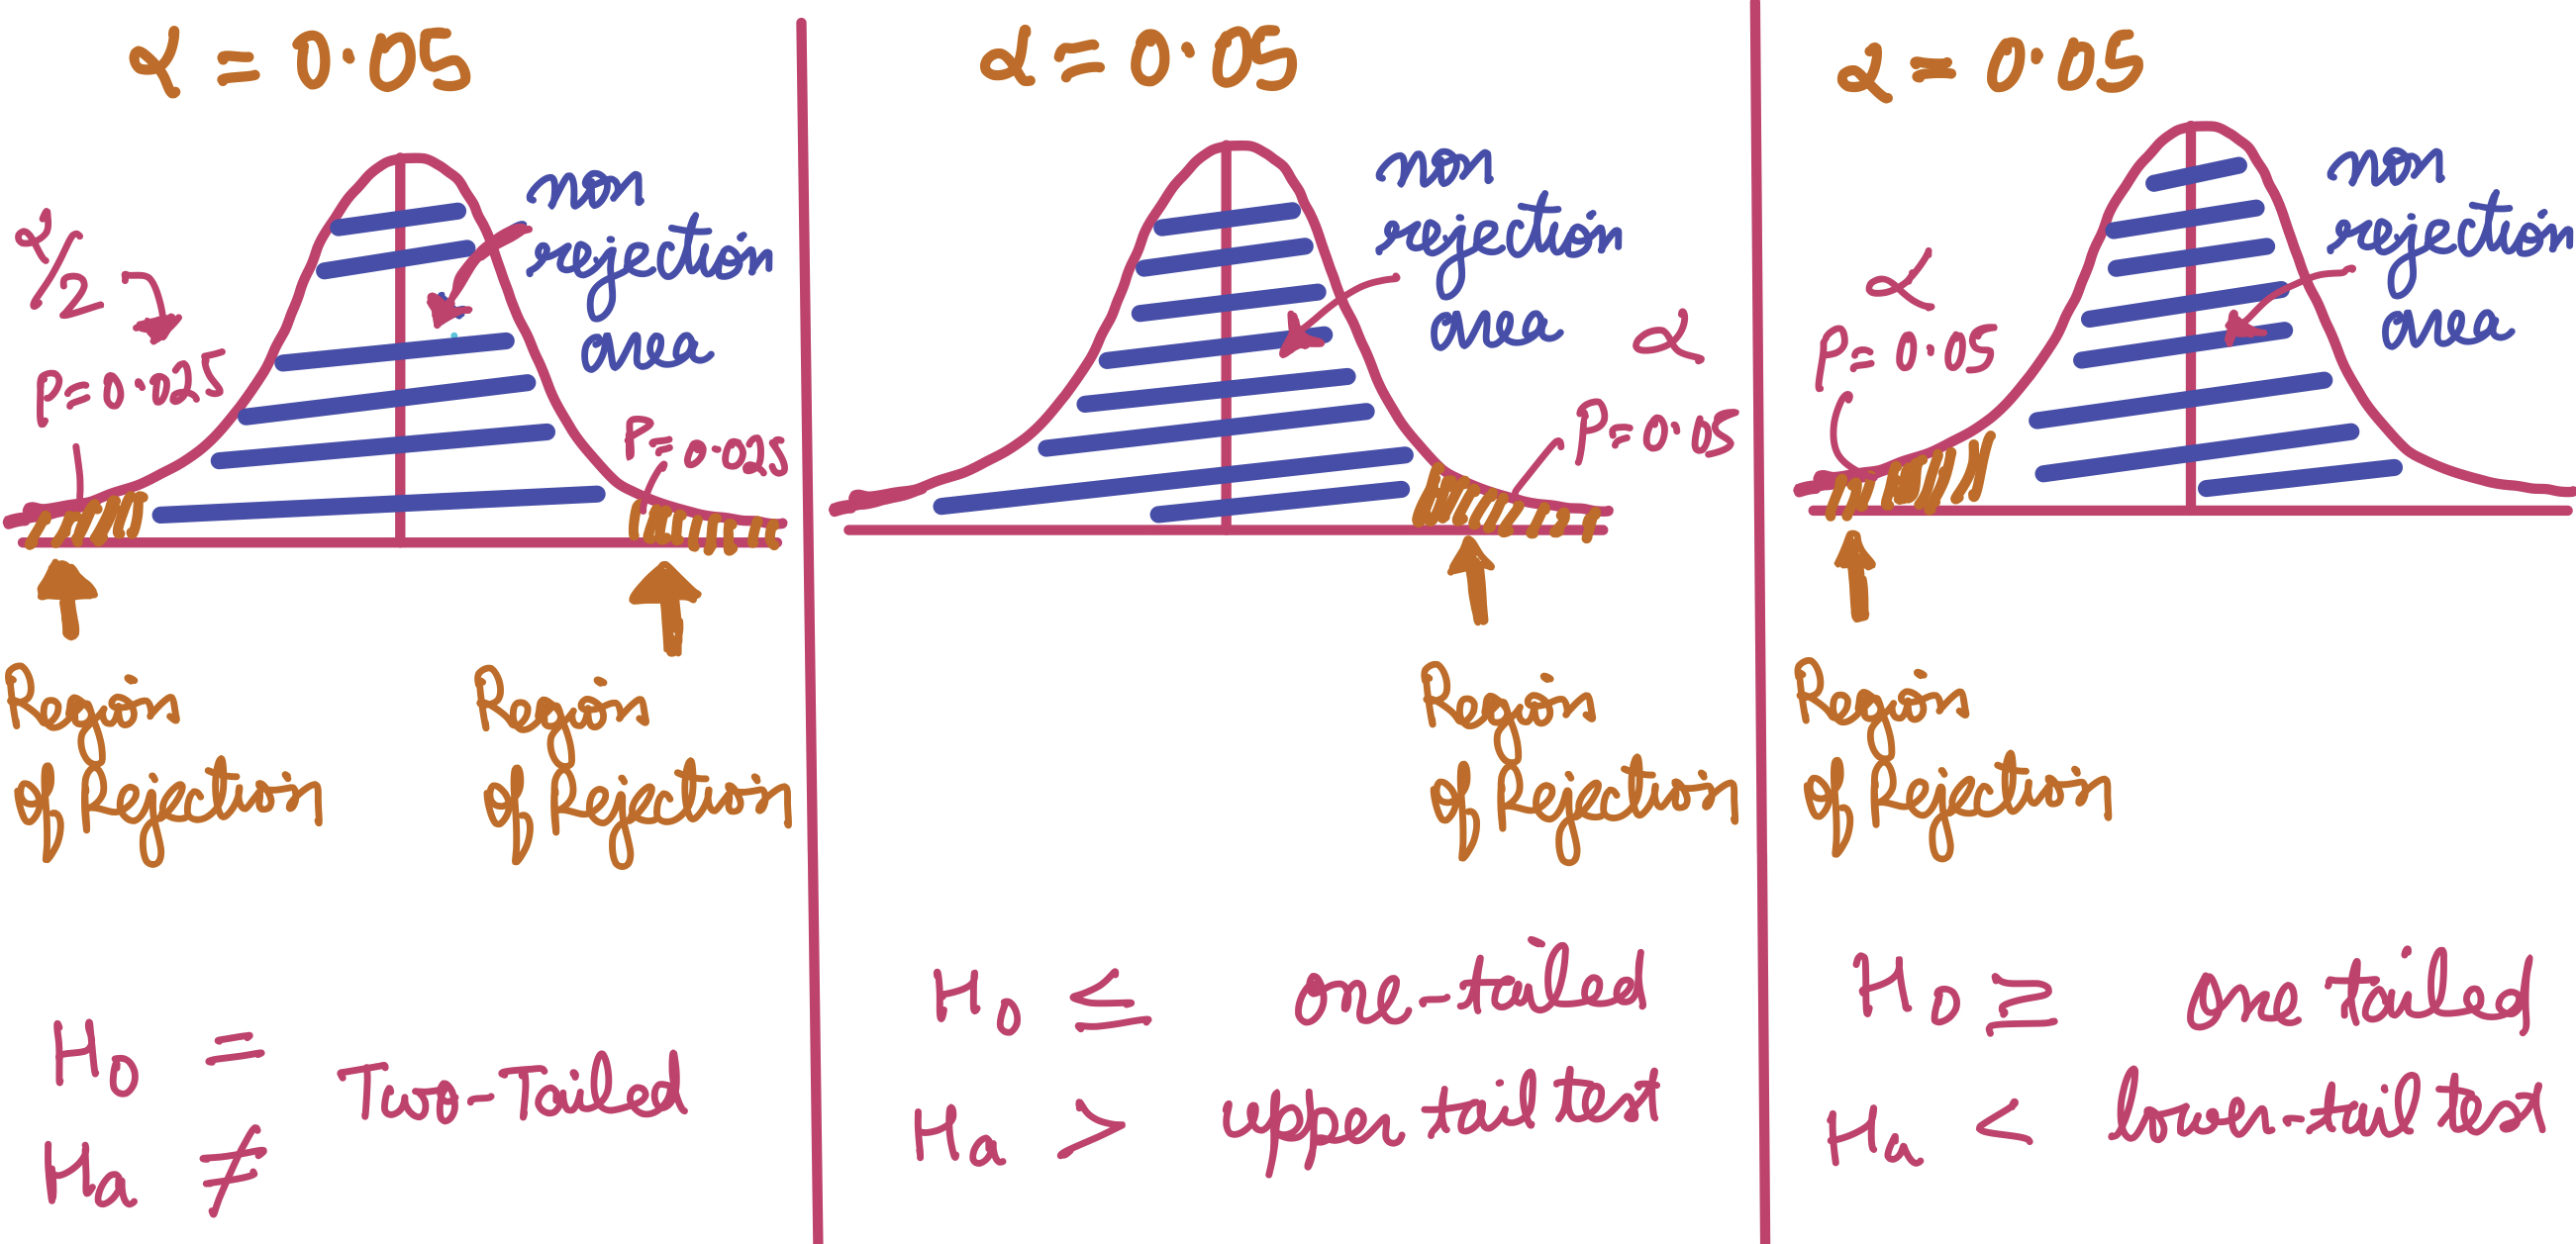 α = 0.05
non
rejection
area
α/2
P=0.025
P=0.025
Region
of Rejection
Region
of Rejection
H0 =
Ha ≠
Two-Tailed
α = 0.05
non
rejection
area
α
P=0.05
Region
of Rejection
H0 ≤ one-tailed
Ha > upper tail test
α = 0.05
non
rejection
area
α
P=0.05
Region
of Rejection
H0 ≥ one tailed
Ha < lower-tail test